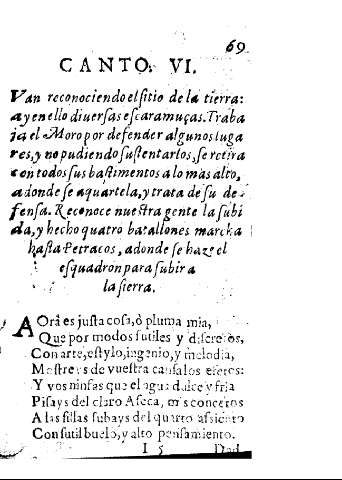 69
CANTO. VI.
Van reconociendo el sitio de la tierra:
ay en ello diuersas escaramuças. Traba
ja el Moro por defender algunos luga
res, y no pudiendo sustentarlos, se retira
con todos sus bastimentos a lo mas alto,
adonde se aquartela, y trata de su de
fensa. Reconoce nuestra gente la subi
da, y hecho quatro batallones marcha
hasta Petracos, adonde se haze el
esquadron para subir a
la sierra.
AOra es justa cosa, ò pluma mia,
Que por modos sutiles y discretos,
Con arte, estylo, ingenio, y melodia,
Mostreys de vuestra causa los efetos:
Y vos ninfas que el agua dulce y fria
Pisays del claro Aseca, mis concetos
A las sillas subays del quarto assiento
Con sutil buelo, y alto pensamiento.
I 5